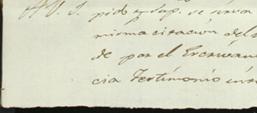 A V. S. pido y sup. se sirva
misma citacion del
de por el Escrivan
cia Testimonio in